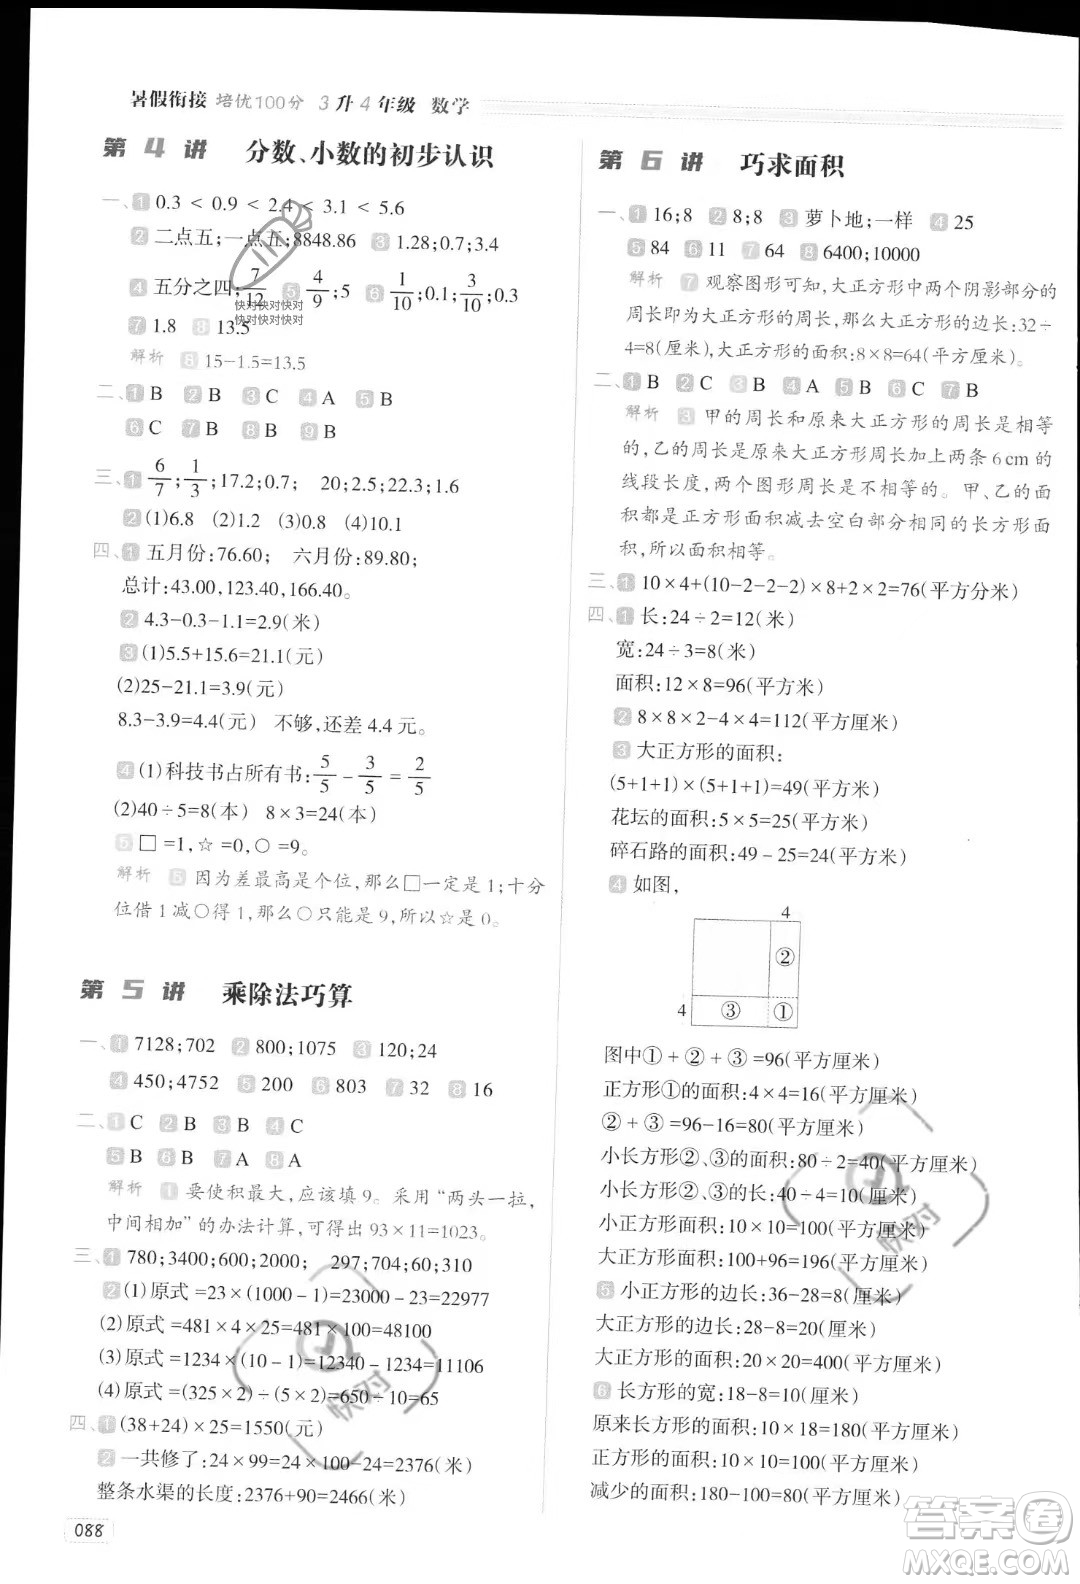 暑假衔接 培优100分 3升4年级 数学
第4讲 分数、小数的初步认识
一、1 0.3 < 0.9 < 2.4 < 3.1 < 5.6
2 二点五;一点五;8848.86 3 1.28;0.7;3.4
4 五分之四;7/12 5 4/9;5 6 1/10;0.1;3/10;0.3
7 1.8 8 13.5
解析 8 15-1.5=13.5
二、1 B 2 B 3 C 4 A 5 B
6 C 7 B 8 B 9 B
三、1 6/7;1/3;17.2;0.7 20;2.5;22.3;1.6
2 (1)6.8 (2)1.2 (3)0.8 (4)10.1
四、1 五月份:76.60; 六月份:89.80;
总计:43.00,123.40,166.40。
2 4.3-0.3-1.1=2.9(米)
3 (1)5.5+15.6=21.1(元)
(2)25-21.1=3.9(元)
8.3-3.9=4.4(元) 不够,还差 4.4 元。
4 (1)科技书占所有书:5/5-3/5=2/5
(2)40÷5=8(本) 8×3=24(本)
5 □=1,☆=0,○=9。
解析 5 因为差最高是个位,那么□一定是 1;十分
位借 1 减○得 1,那么○只能是 9,所以☆是 0。
第5讲 乘除法巧算
一、1 7128;702 2 800;1075 3 120;24
4 450;4752 5 200 6 803 7 32 8 16
二、1 C 2 B 3 B 4 C
5 B 6 B 7 A 8 A
解析 1 要使积最大,应该填 9。采用“两头一拉,
中间相加”的办法计算,可得出 93×11=1023。
三、1 780;3400;600;2000; 297;704;60;310
2 (1)原式=23×(1000-1)=23000-23=22977
(2)原式=481×4×25=481×100=48100
(3)原式=1234×(10-1)=12340-1234=11106
(4)原式=(325×2)÷(5×2)=650÷10=65
四、1 (38+24)×25=1550(元)
2 一共修了:24×99=24×100-24=2376(米)
整条水渠的长度:2376+90=2466(米)
088
第6讲 巧求面积
一、1 16;8 2 8;8 3 萝卜地;一样 4 25
5 84 6 11 7 64 8 6400;10000
解析 7 观察图形可知,大正方形中两个阴影部分的
周长即为大正方形的周长,那么大正方形的边长:32÷
4=8(厘米),大正方形的面积:8×8=64(平方厘米)。
二、1 B 2 C 3 B 4 A 5 B 6 C 7 B
解析 3 甲的周长和原来大正方形的周长是相等
的,乙的周长是原来大正方形周长加上两条 6 cm 的
线段长度,两个图形周长是不相等的。甲、乙的面
积都是正方形面积减去空白部分相同的长方形面
积,所以面积相等。
三、1 10×4+(10-2-2-2)×8+2×2=76(平方分米)
四、1 长:24÷2=12(米)
宽:24÷3=8(米)
面积:12×8=96(平方米)
2 8×8×2-4×4=112(平方厘米)
3 大正方形的面积:
(5+1+1)×(5+1+1)=49(平方米)
花坛的面积:5×5=25(平方米)
碎石路的面积:49-25=24(平方米)
4 如图,
4
②
4 ③ ①
图中①+②+③=96(平方厘米)
正方形①的面积:4×4=16(平方厘米)
②+③=96-16=80(平方厘米)
小长方形②、③的面积:80÷2=40(平方厘米)
小长方形②、③的长:40÷4=10(厘米)
小正方形面积:10×10=100(平方厘米)
大正方形面积:100+96=196(平方厘米)
5 小正方形的边长:36-28=8(厘米)
大正方形的边长:28-8=20(厘米)
大正方形的面积:20×20=400(平方厘米)
6 长方形的宽:18-8=10(厘米)
原来长方形的面积:10×18=180(平方厘米)
正方形的面积:10×10=100(平方厘米)
减少的面积:180-100=80(平方厘米)
快对快对快对
快对快对快对
快对
快对
答案圈
MXQE.COM